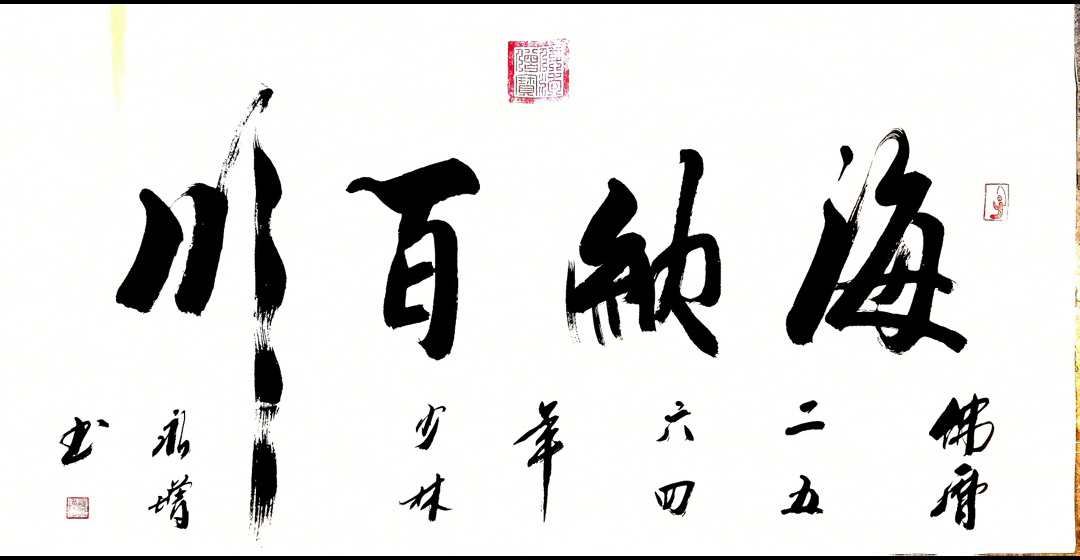 海納百川
佛曆
二五
六四
年
少林
永增
书